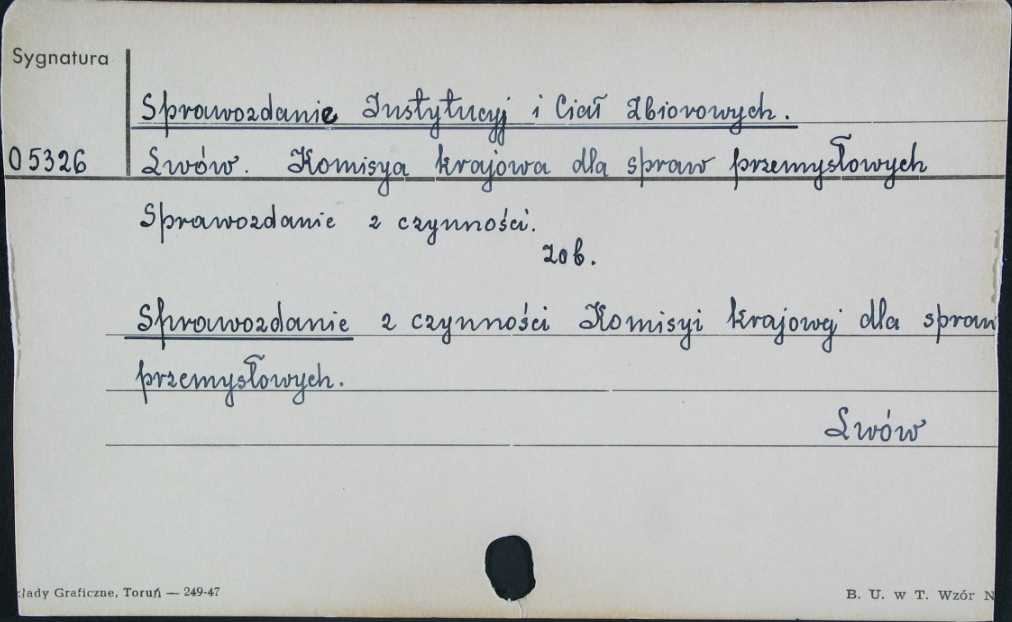 Sygnatura
Sprawozdanie Instytucyj i Ciał Zbiorowych.
05326 Lwów. Komisya krajowa dla spraw przemysłowych
Sprawozdanie z czynności.
zob.
Sprawozdanie z czynności Komisyi krajowej dla spraw
przemysłowych.
Lwów
łady Graficzne, Toruń — 249-47 B. U. w T. Wzór N